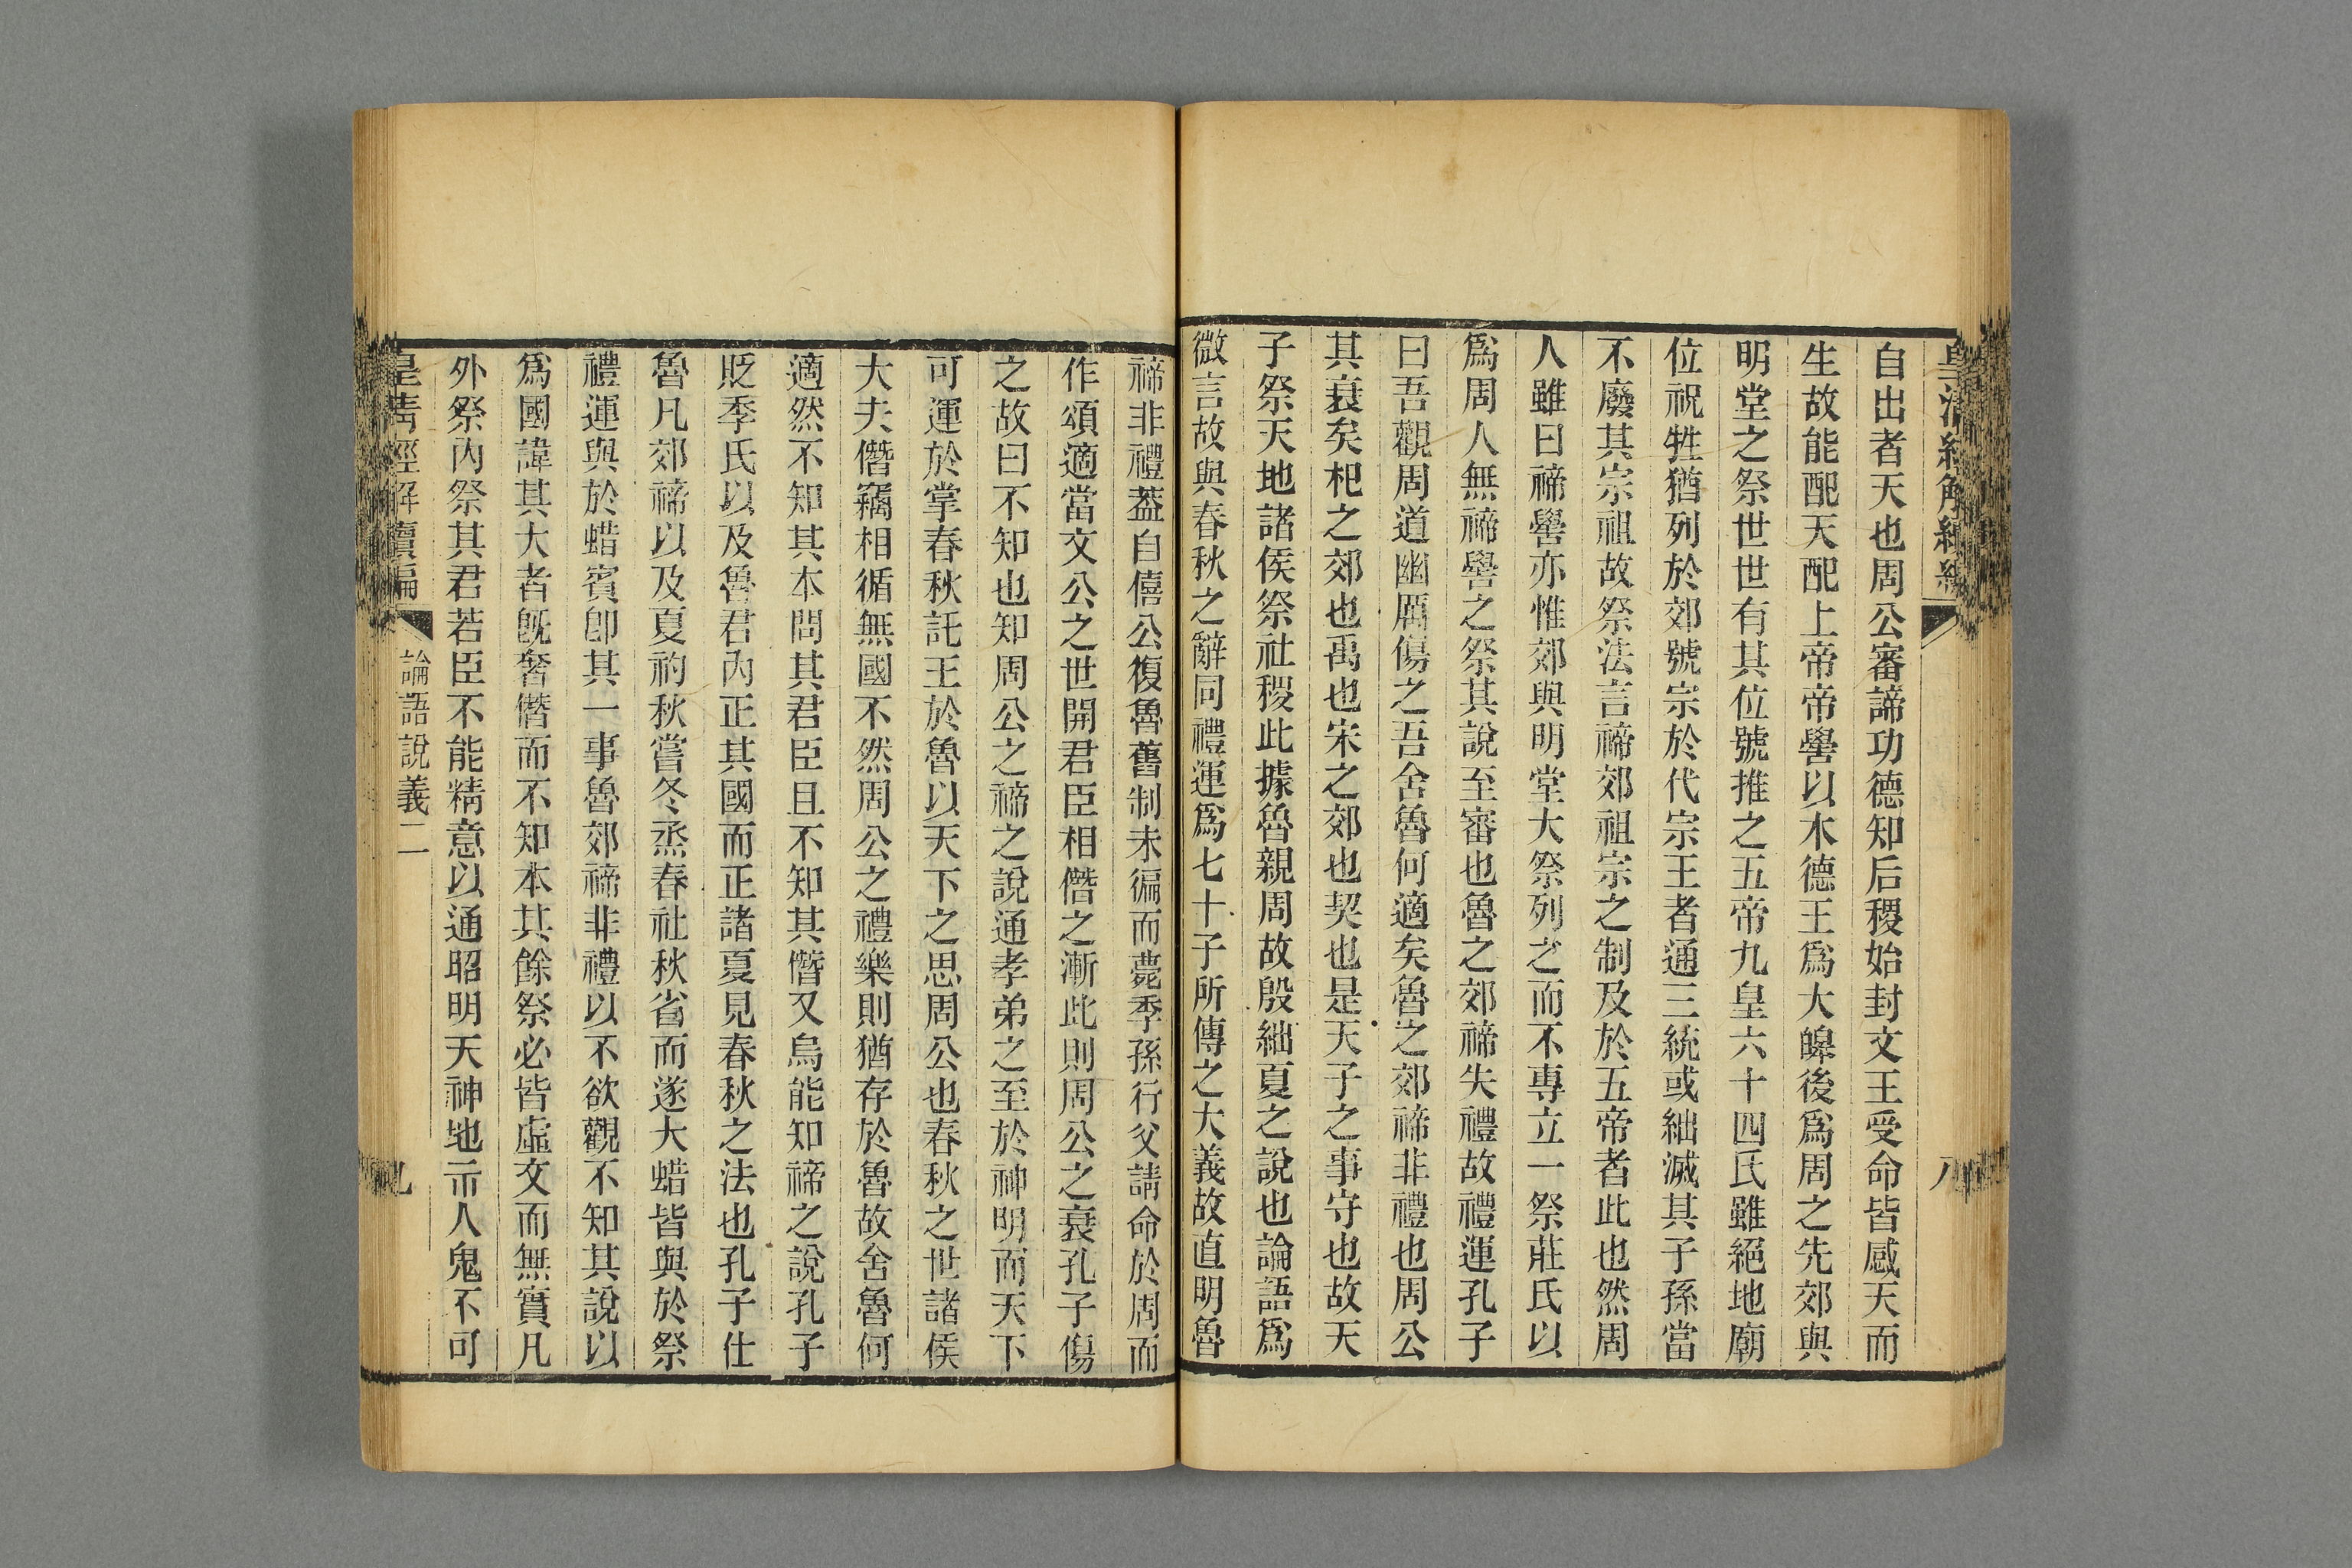 自出者天也周公審諦功德知后稷始封文王受命皆感天而
生故能配天配上帝帝嚳以木德王爲大皞後爲周之先郊與
明堂之祭世世有其位號推之五帝九皇六十四氏雖絕地廟
位祝牲猶列於郊號宗於代宗王者通三統或絀滅其子孫當
不廢其宗祖故祭法言禘郊祖宗之制及於五帝者此也然周
人雖曰禘嚳亦惟郊與明堂大祭列之而不專立一祭莊氏以
爲周人無禘嚳之祭其說至審也魯之郊禘失禮故禮運孔子
曰吾觀周道幽厲傷之吾舍魯何適矣魯之郊禘非禮也周公
其衰矣杞之郊也禹也宋之郊也契也是天子之事守也故天
子祭天地諸侯祭社稷此據魯親周故殷絀夏之說也論語爲
微言故與春秋之辭同禮運爲七十子所傳之大義故直明魯
禘非禮葢自僖公復魯舊制未徧而薨季孫行父請命於周而
作頌適當文公之世開君臣相僭之漸此則周公之衰孔子傷
之故曰不知也知周公之禘之說通孝弟之至於神明而天下
可運於掌春秋託王於魯以天下之思周公也春秋之世諸侯
大夫僭竊相循無國不然周公之禮樂則猶存於魯故舍魯何
適然不知其本問其君臣且不知其僭又烏能知禘之說孔子
貶季氏以及魯君內正其國而正諸夏見春秋之法也孔子仕
魯凡郊禘以及夏礿秋嘗冬烝春社秋省而遂大蜡皆與於祭
禮運與於蜡賓卽其一事魯郊禘非禮以不欲觀不知其說以
爲國諱其大者旣奢僭而不知本其餘祭必皆虛文而無實凡
外祭內祭其君若臣不能精意以通昭明天神地示人鬼不可
皇清經解續編
論語說義二